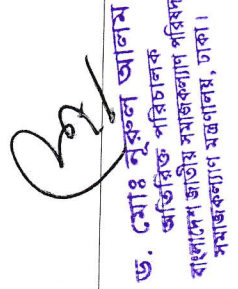 ড. মোঃ নূরুল আলম
অতিরিক্ত পরিচালক
বাংলাদেশ জাতীয় সমাজকল্যাণ পরিষদ
সমাজকল্যাণ মন্ত্রণালয়, ঢাকা।